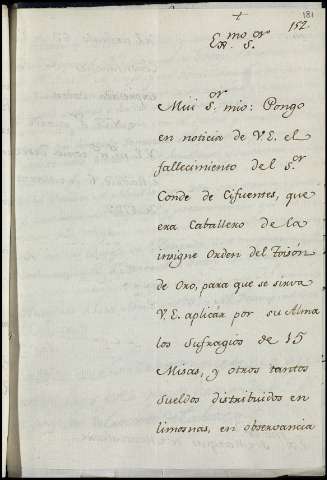 +
181
152.
Ex.mo S.or
Mui S.or mio: Pongo
en noticia de V.E. el
fallecimiento del S.or
Conde de Cifuentes, que
era Caballero de la
insigne Orden del Toisón
de Oro, para que se sirva
V.E. aplicár por su Alma
los sufragios de 15
Misas, y otros tantos
sueldos distribuidos en
limosnas, en observancia